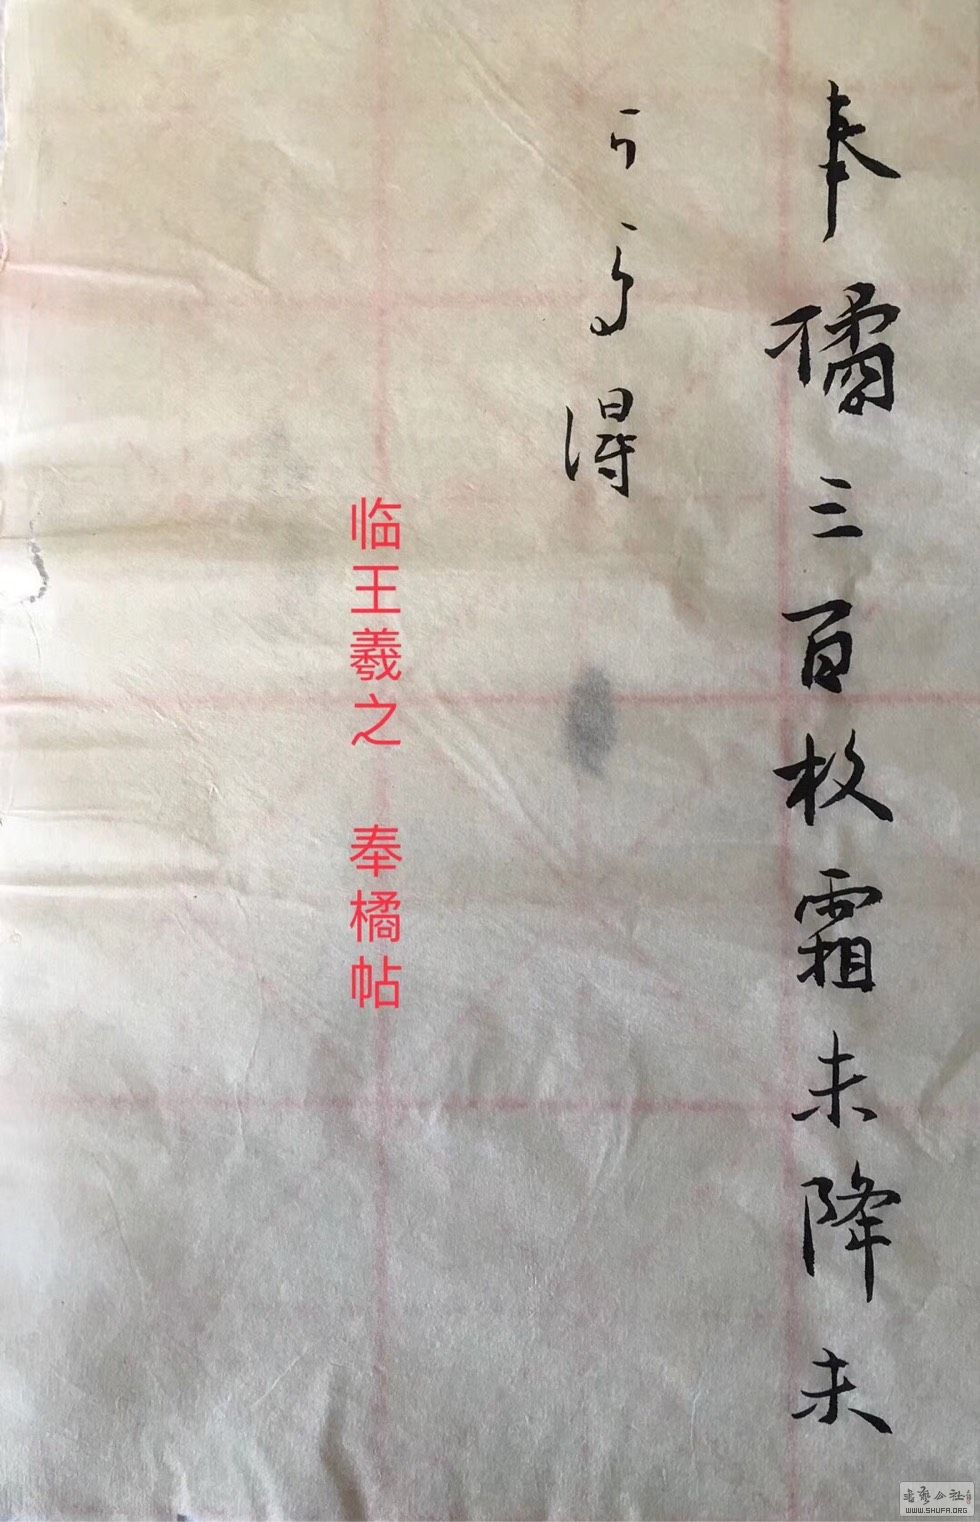 奉橘三百枚霜未降未
可多得
临王羲之 奉橘帖
书艺公社
WWW.SHUFA.ORG